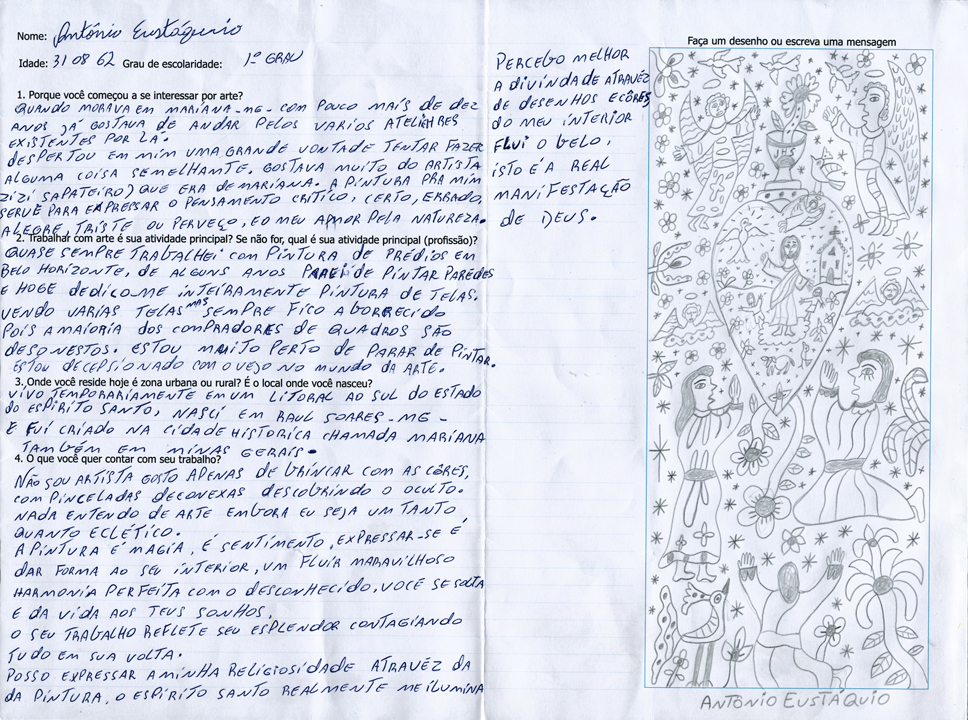 Nome: Antônio Eustáquio
Idade: 31 08 62 Grau de escolaridade: 1º GRAU
1. Porque você começou a se interessar por arte?
QUANDO MORAVA EM MARIANA-MG- COM POUCO MAIS DE DEZ
ANOS JÁ GOSTAVA DE ANDAR PELOS VARIOS ATELIHRES
EXISTENTES POR LÁ.
DESPERTOU EM MIM UMA GRANDE VONTADE TENTAR FAZER
ALGUMA COISA SEMELHAMTE. GOSTAVA MUITO DO ARTISTA
ZIZI SAPATEIRO) QUE ERA DE MARIANA. A PINTURA PRA MIM
SERVE PARA EXPRESSAR O PENSAMENTO CRITICO, CERTO, ERRADO,
ALEGRE, TRISTE OU PERVEÇO, E O MEU AMOR PELA NATUREZA.
2. Trabalhar com arte é sua atividade principal? Se não for, qual é sua atividade principal (profissão)?
QUASE SEMPRE TRABALHEI COM PINTURA DE PRÉDIOS EM
BELO HORIZONTE, DE ALGUNS ANOS PAREI DE PINTAR PAREDES
E HOGE DEDICO-ME INTEIRAMENTE PINTURA DE TELAS.
VENDO VARIAS TELAS MAS SEMPRE FICO ABORRECIDO
POIS A MAIORIA DOS COMPRADORES DE QUADROS SÃO
DESONESTOS. ESTOU MUITO PERTO DE PARAR DE PINTAR.
ESTOU DECEPSIONADO COM O VEJO NO MUNDO DA ARTE.
3. Onde você reside hoje é zona urbana ou rural? É o local onde você nasceu?
VIVO TEMPORARIAMENTE EM UM LITORAL AO SUL DO ESTADO
DO ESPÍRITO SANTO, NASCI EM RAUL SOARES-MG-
E FUI CRIADO NA CIDADE HISTORICA CHAMADA MARIANA
TAMBÉM EM MINAS GERAIS.
4. O que você quer contar com seu trabalho?
NÃO SOU ARTISTA GOSTO APENAS DE BRINCAR COM AS CÔRES,
COM PINCELADAS DECONEXAS DESCOBRINDO O OCULTO.
NADA ENTENDO DE ARTE EMBORA EU SEJA UM TANTO
QUANTO ECLÉTICO.
A PINTURA É MAGIA, É SENTIMENTO, EXPRESSAR-SE É
DAR FORMA AO SEU INTERIOR, UM FLUIR MARAVILHOSO
HARMONIA PERFEITA COM O DESCONHECIDO, VOCÊ SE SOLTA
E DA VIDA AOS TEUS SONHOS.
O SEU TRABALHO REFLETE SEU ESPLENDOR CONTAGIANDO
TUDO EM SUA VOLTA.
POSSO EXPRESSAR A MINHA RELIGIOSIDADE ATRAVÉZ DA
DA PINTURA, O ESPÍRITO SANTO REALMENTE ME ILUMINA
PERCEBO MELHOR
A DIVINDADE ATRAVÉZ
DE DESENHOS E CÔRES
DO MEU INTERIOR
FLUI O BELO,
ISTO É A REAL
MANIFESTAÇÃO
DE DEUS.
Faça um desenho ou escreva uma mensagem
JHS
ANTÔNIO EUSTÁQUIO